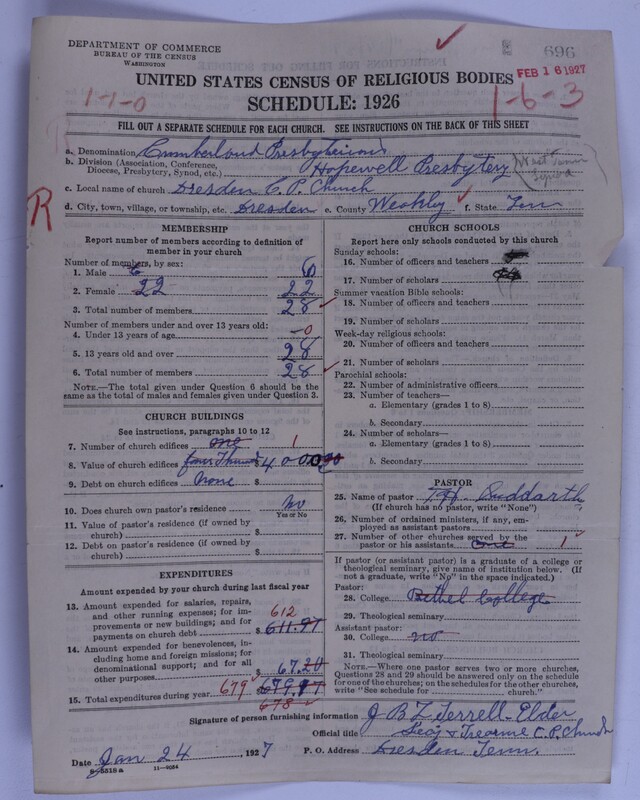 DEPARTMENT OF COMMERCE
BUREAU OF THE CENSUS
WASHINGTON
696
FEB 16 1927
UNITED STATES CENSUS OF RELIGIOUS BODIES
SCHEDULE: 1926
1-1-0
1-6-3
FILL OUT A SEPARATE SCHEDULE FOR EACH CHURCH. SEE INSTRUCTIONS ON THE BACK OF THIS SHEET
a. Denomination Cumberland Presbyterians
b. Division (Association, Conference, Diocese, Presbytery, Synod, etc.) Hopewell Presbytery
c. Local name of church Dresden C. P. Church
R
d. City, town, village, or township, etc. Dresden e. County Weakley f. State Tenn
MEMBERSHIP
Report number of members according to definition of member in your church
Number of members, by sex:
1. Male 6 6
2. Female 22 22
3. Total number of members 28
Number of members under and over 13 years old:
4. Under 13 years of age -0
5. 13 years old and over 28
6. Total number of members 28
NOTE.—The total given under Question 6 should be the same as the total of males and females given under Question 3.
CHURCH BUILDINGS
See instructions, paragraphs 10 to 12
7. Number of church edifices one 1
8. Value of church edifices four Thousand $ 4000
9. Debt on church edifices None $
10. Does church own pastor's residence No
Yes or No
11. Value of pastor's residence (if owned by church) $
12. Debt on pastor's residence (if owned by church) $
EXPENDITURES
Amount expended by church during last fiscal year
13. Amount expended for salaries, repairs, and other running expenses; for improvements or new buildings; and for payments on church debt $ 611.97 612
14. Amount expended for benevolences, including home and foreign missions; for denominational support; and for all other purposes $ 67.20
15. Total expenditures during year 679 679.17
678
CHURCH SCHOOLS
Report here only schools conducted by this church
Sunday schools:
16. Number of officers and teachers
17. Number of scholars
Summer vacation Bible schools:
18. Number of officers and teachers
19. Number of scholars
Week-day religious schools:
20. Number of officers and teachers
21. Number of scholars
Parochial schools:
22. Number of administrative officers
23. Number of teachers—
a. Elementary (grades 1 to 8)
b. Secondary
24. Number of scholars—
a. Elementary (grades 1 to 8)
b. Secondary
PASTOR
25. Name of pastor Suddarth
(If church has no pastor, write "None")
26. Number of ordained ministers, if any, employed as assistant pastors
27. Number of other churches served by the pastor or his assistants one 1
If pastor (or assistant pastor) is a graduate of a college or theological seminary, give name of institution below. (If not a graduate, write "No" in the space indicated.)
Pastor:
28. College Bethel College
29. Theological seminary
Assistant pastor:
30. College no
31. Theological seminary
NOTE.—Where one pastor serves two or more churches, Questions 28 and 29 should be answered only on the schedule for one of the churches; on the schedules for the other churches, write "See schedule for church."
Signature of person furnishing information J B L Terrell-Elder
Official title Secy & Treasure C. P. Church
Date Jan 24, 1927 P. O. Address Dresden Tenn.
8-5518a 11-9054